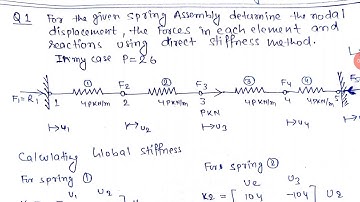 Q1 For the given spring Assembly determine the nodal
displacement, the forces in each element and
reactions using direct stiffness method.
In my case P=26
① F2 ② F3 ③ F4 ④
F1=R1 1 4PKN/m 2 4PKN/m 3 4PKN/m 4 4PKN/m 5
PKN
↦u1 ↦u2 ↦u3 ↦u4
Calculating Global stiffness
For spring ① For spring ②
u1 u2 u2 u3
K2 = [104 -104] u2